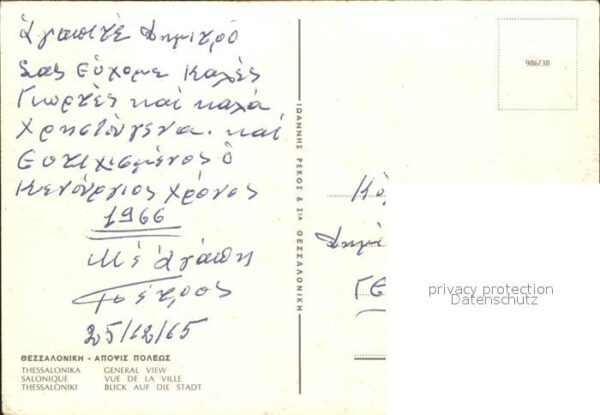 Ἀγαπιτέ Δημιτρό
Σας Εύχομε καλές
Γιορτές καί καλά
Χρηστούγενα. καί
Ευτιχισμένος ὁ
Κενούργιος χρόνος
1966
Μέ ἀγάπη
Πέτρος
25/12/65
ΘΕΣΣΑΛΟΝΙΚΗ - ΑΠΟΨΙΣ ΠΟΛΕΩΣ
THESSALONIKA GENERAL VIEW
SALONIQUE VUE DE LA VILLE
THESSALONIKI BLICK AUF DIE STADT
ΙΩΑΝΝΗΣ ΡΕΚΟΣ & ΣΙΑ ΘΕΣΣΑΛΟΝΙΚΗ
986/38
privacy protection
Datenschutz